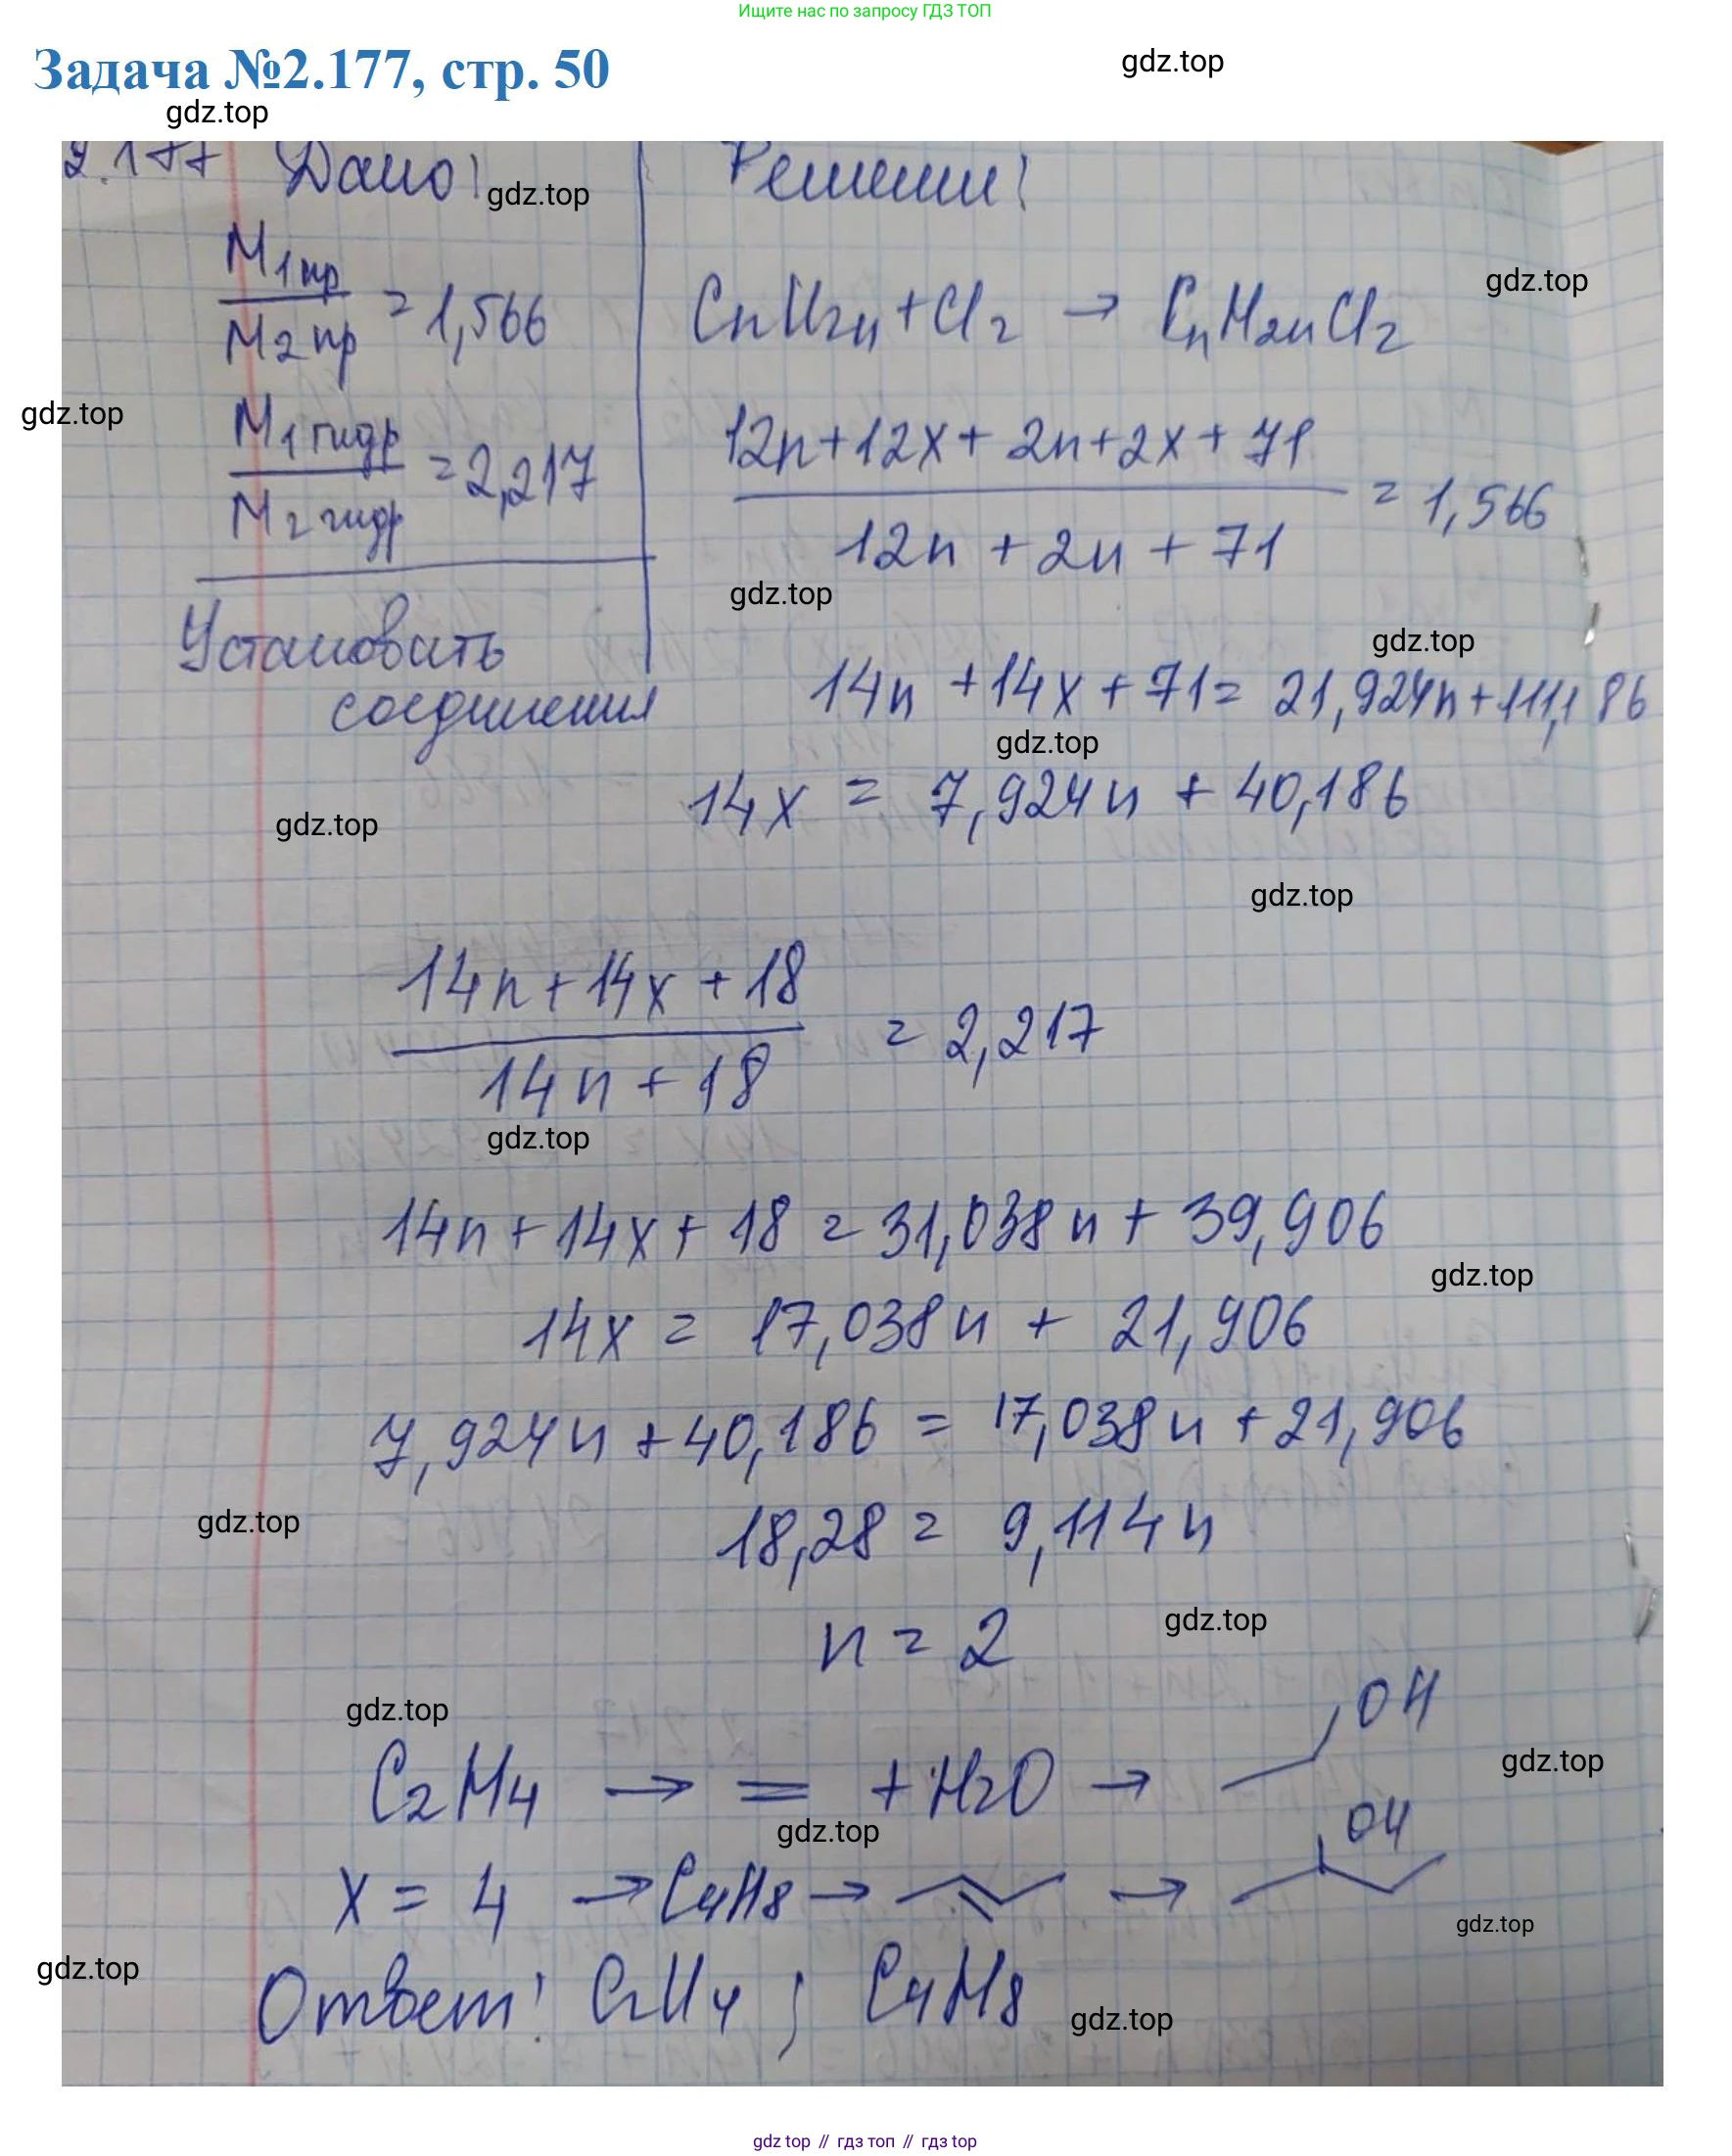 Ищите нас по запросу ГДЗ ТОП
Задача №2.177, стр. 50
gdz.top
gdz.top
2.177 Дано:
Решение:
gdz.top
M1пр / M2пр = 1,566
CnH2n + Cl2 → CnH2nCl2
gdz.top
gdz.top
M1гидр / M2гидр = 2,217
12n + 12x + 2n + 2x + 71 / 12n + 2n + 71 = 1,566
gdz.top
Установить
соединения
gdz.top
14n + 14x + 71 = 21,924n + 111,186
gdz.top
14x = 7,924n + 40,186
gdz.top
gdz.top
14n + 14x + 18 / 14n + 18 = 2,217
gdz.top
14n + 14x + 18 = 31,038n + 39,906
gdz.top
14x = 17,038n + 21,906
7,924n + 40,186 = 17,038n + 21,906
gdz.top
18,28 = 9,114n
gdz.top
n = 2
gdz.top
OH
gdz.top
C2H4 → = + H2O →
gdz.top
OH
x = 4 → C4H8 → →
gdz.top
gdz.top
Ответ: C2H4; C4H8
gdz.top
gdz top // гдз топ // гдз top